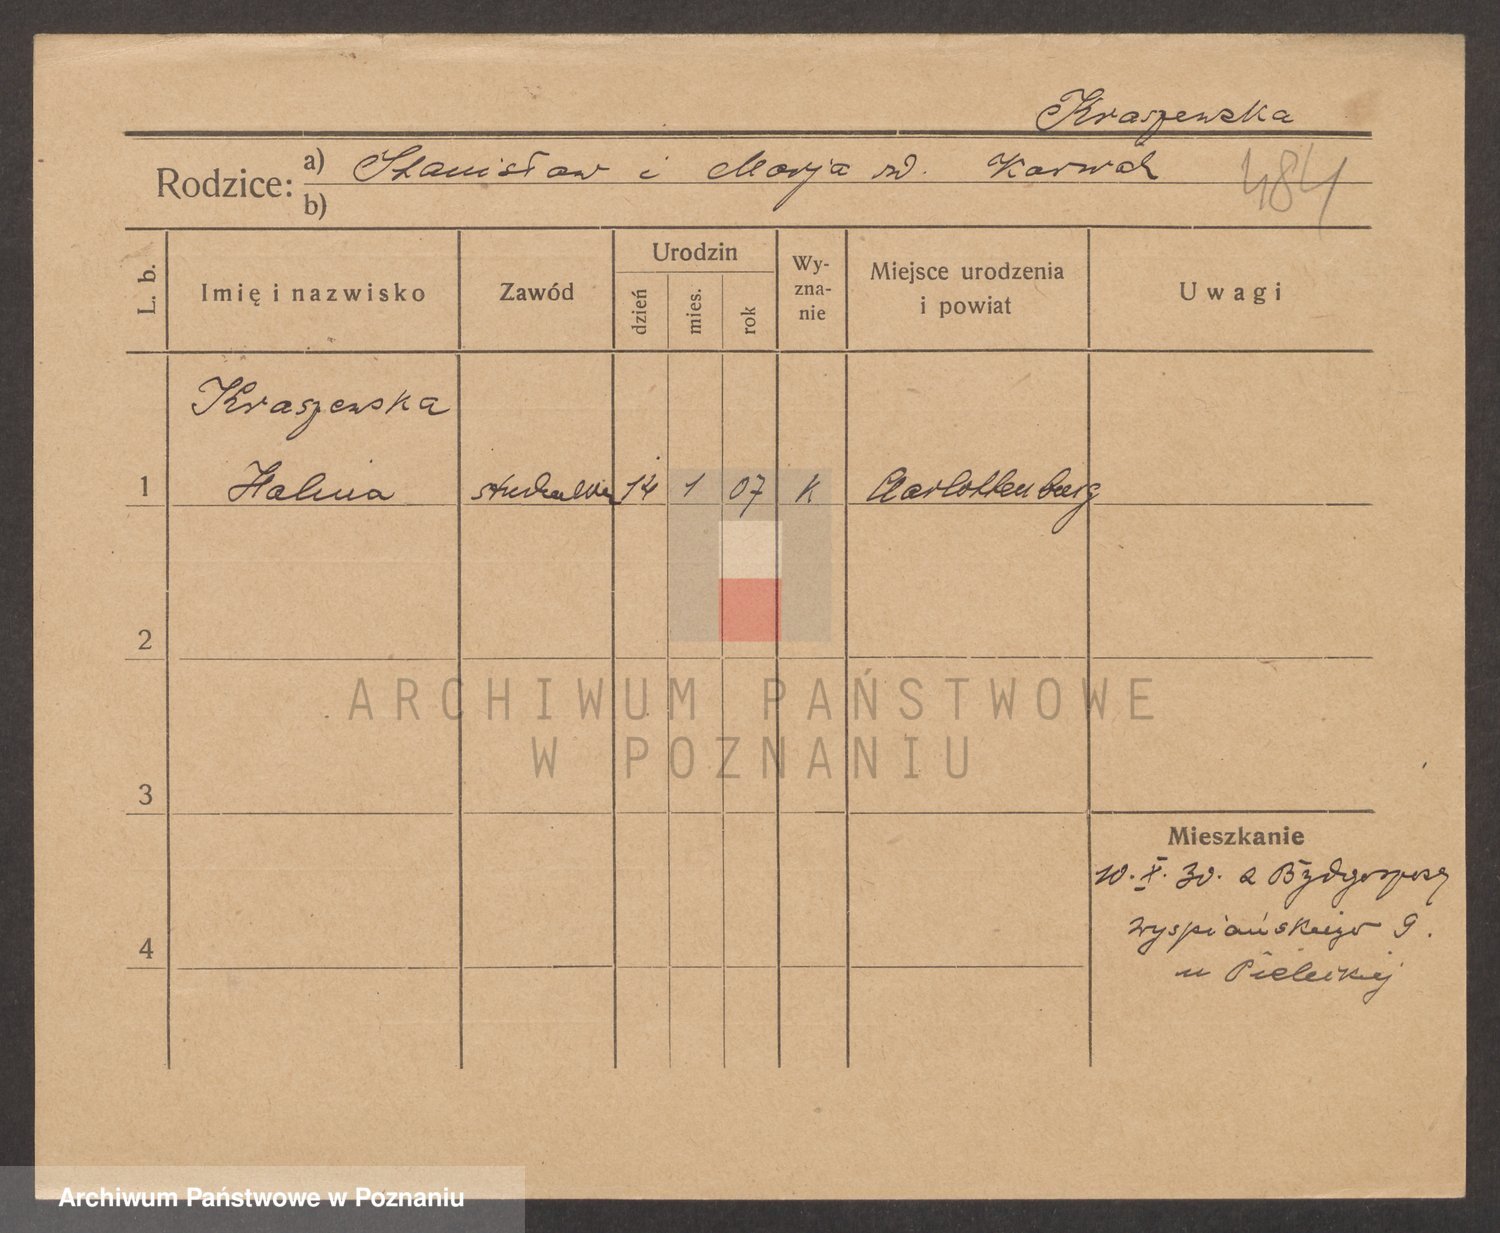 Kraszewska
Rodzice: a) Stanisław i Marja rd. Karwat
b)
484
L. b. Imię i nazwisko Zawód Urodzin dzień mies. rok Wy-zna-nie Miejsce urodzenia i powiat Uwagi
Kraszewska
1 Halina studentka 14 1 07 K Charlottenburg
2
ARCHIWUM PAŃSTWOWE
W POZNANIU
3
Mieszkanie
10. X. 30. z Bydgoszczy
4 Wyspiańskiego 9.
u Pieleckiej
Archiwum Państwowe w Poznaniu